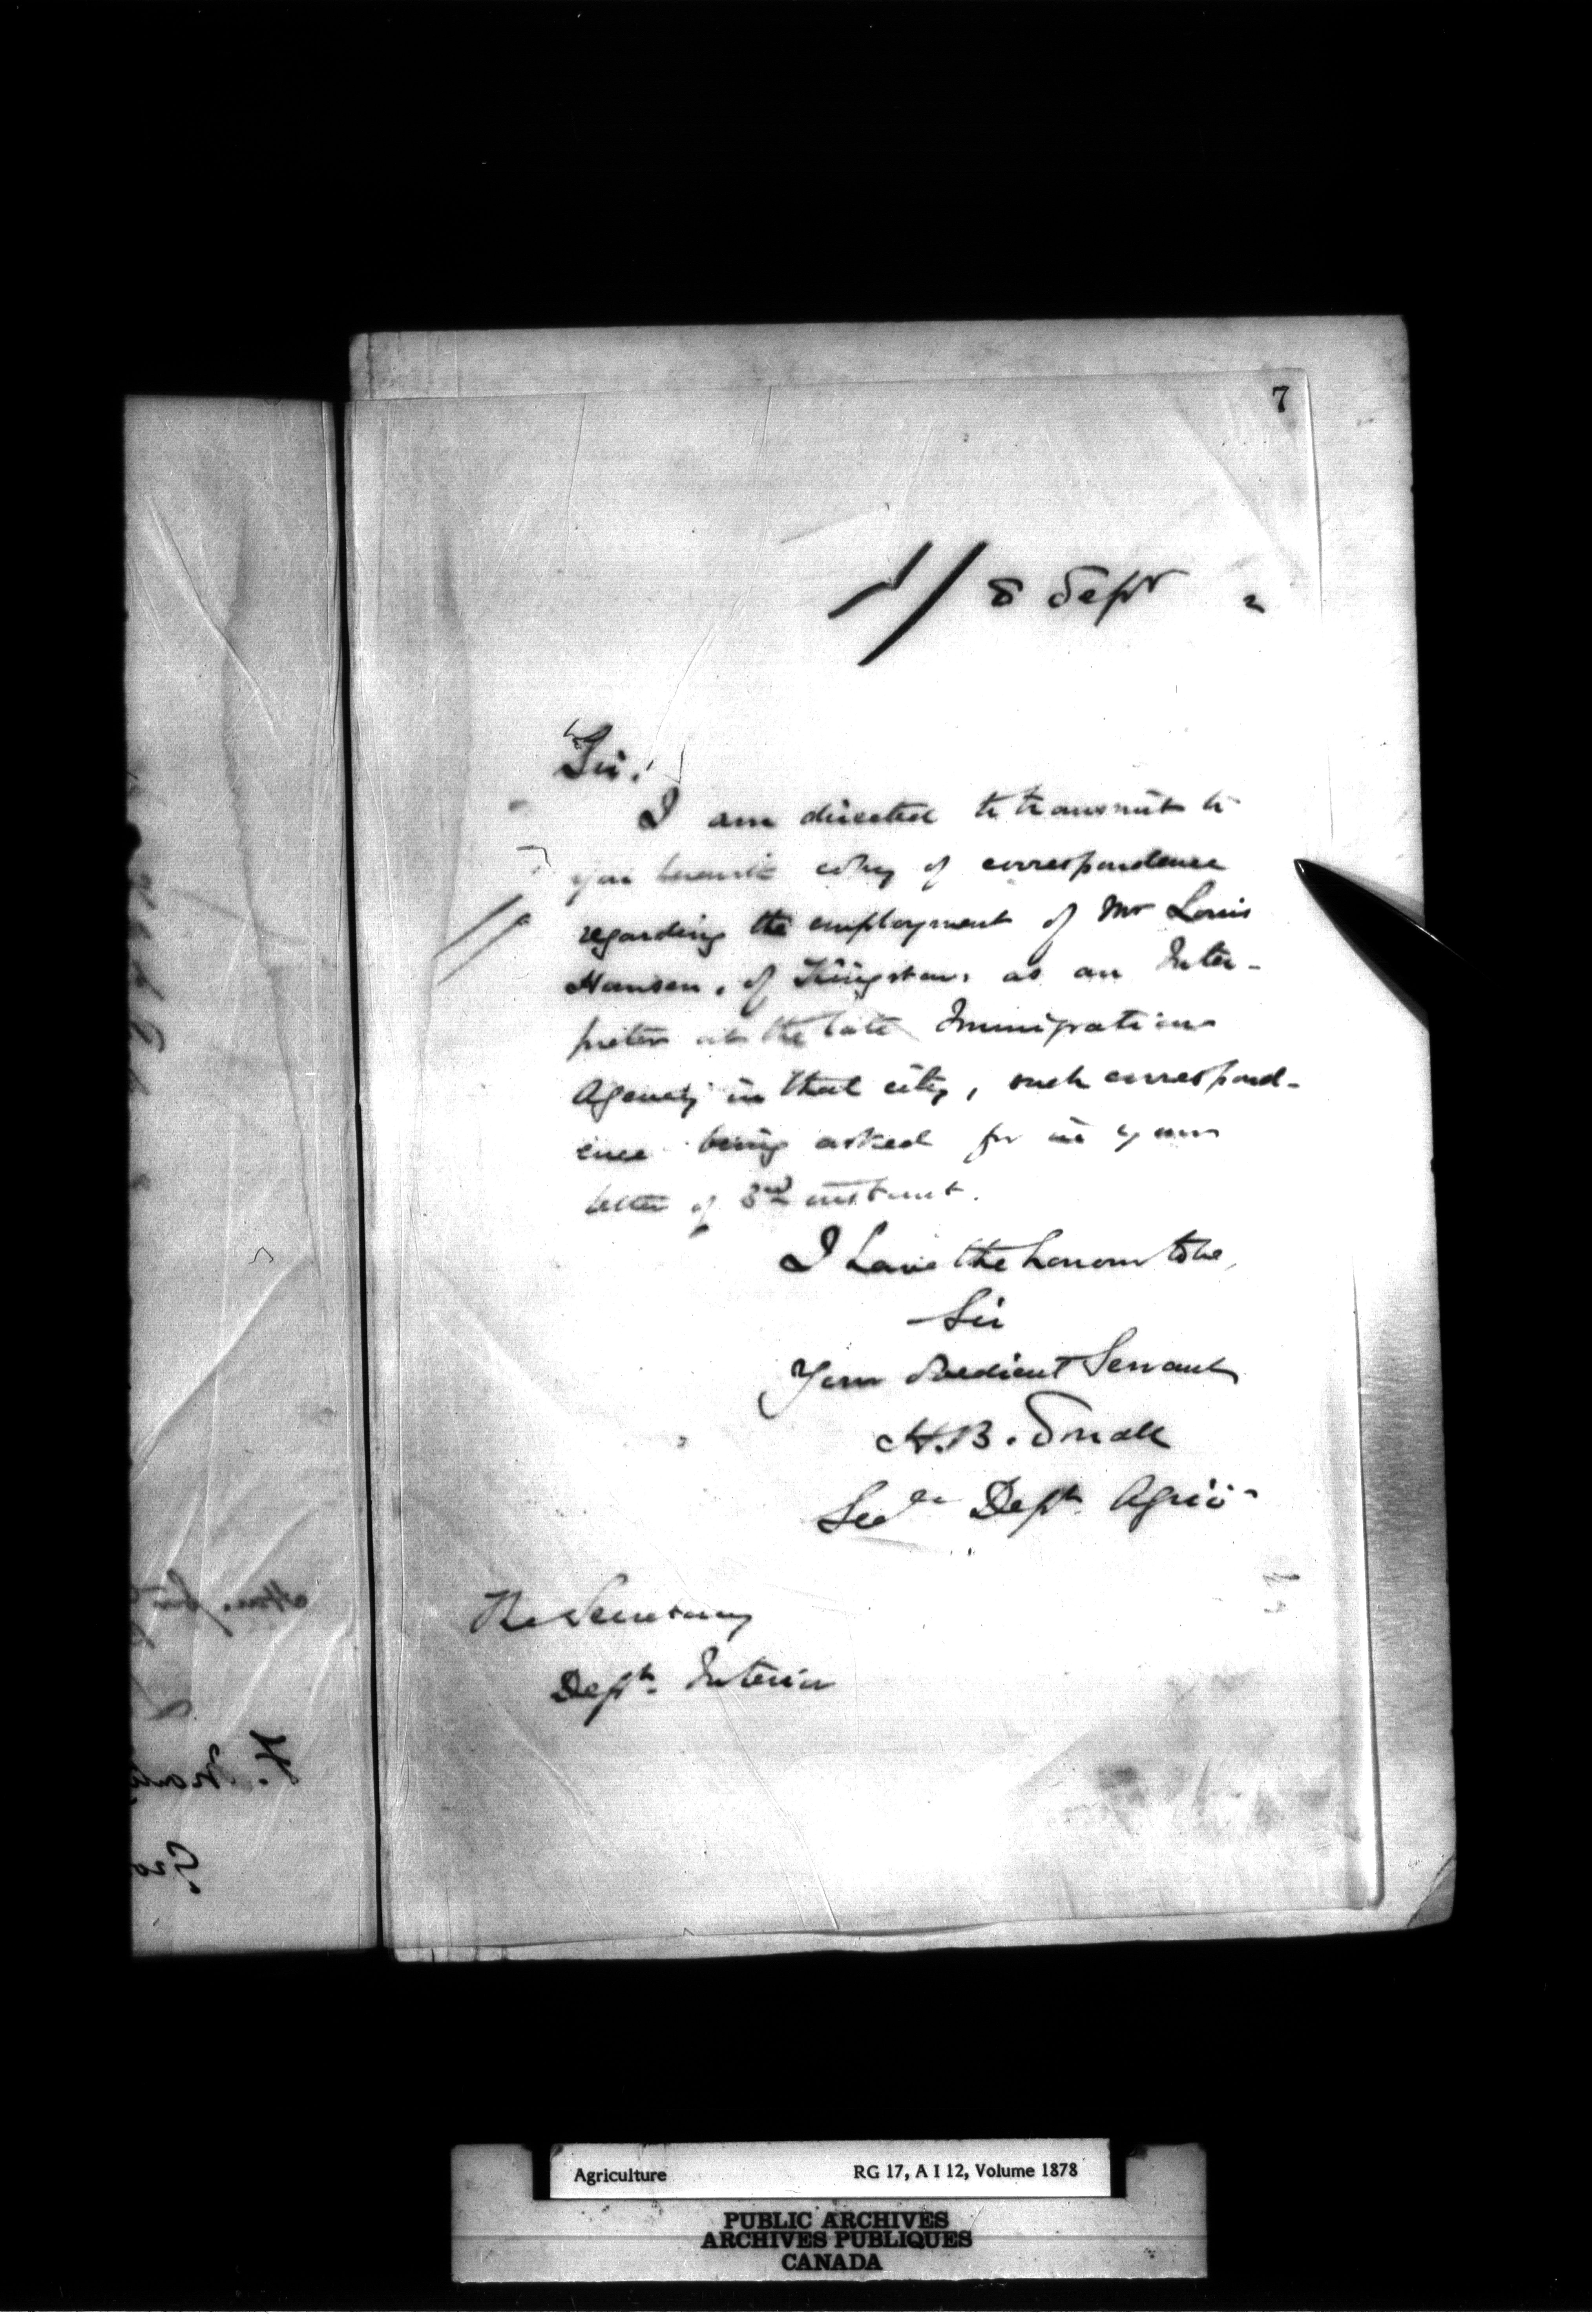 7
8 Sept 2
Sir,
I am directed to transmit to
you herewith copy of correspondence
regarding the employment of Mr Louis
Hansen, of Kingston, as an Inter-
preter at the late Immigration
Agency in that city, such correspond-
ence being asked for in your
letter of 3rd instant.
I have the honour to be,
Sir
Your obedient Servant
H.B. Small
Secy Dept. Agric
The Secretary
Dept. Interior
F.
Agriculture RG 17, A I 12, Volume 1878
PUBLIC ARCHIVES
ARCHIVES PUBLIQUES
CANADA